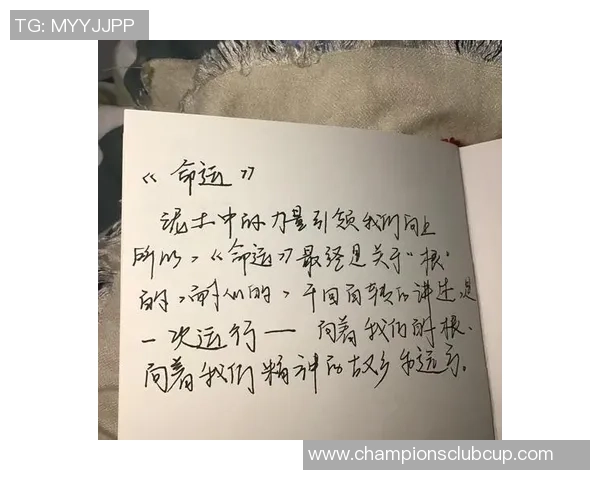 TG: MYYJJPP
《命运》
泥土中的力量引领我们向上
所以，《命运》最终是关于“根”
的，耐人的，千回百转的讲述，是
一次运行——向着我们的根、
向着我们精神的故乡和远方。
www.championsclubcup.com